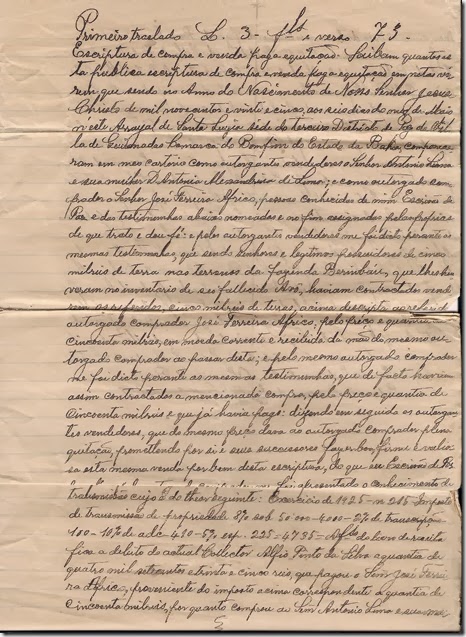 Primeiro traslado L. 3 - fls e verso 73.
Escriptura de compra e venda paga e quitação. Saibam quantos es
ta publica escriptura de compra e venda paga e quitação em notas vi
rem que sendo no Anno do Nascimento de Nosso Senhor Jesus
Christo de mil novecentos e vinte e cinco, aos seis dias do mez de Maio
n'este Arrayal de Santa Luzia séde do terceiro Districto de Paz da Vil
la de Queimadas Comarca do Bomfim do Estado da Bahia, compare
ram em meu cartorio como outorgantes vendedores o Senhor Antonio Lima
e sua mulher D. Antonia Alexandrina de Lima; e como outorgado com
prador o Senhor José Ferreira Africo, pessoas conhecidas de mim Escrivão de
Paz e das testimunhas abaixo nomeadas e no fim assignadas pelas proprias
de que trato e dou fé: e pelos outorgantes vendedores me foi dicto perante as
mesmas testimunhas, que sendo senhores e legitimos possuidores de cinco
milreis de terra nas terrenos da fazenda Berimbáu, que lhes hou
veram no inventario de seu fallecido Avô, haviam contractado vend
os referidos cinco milreis de terras, acima descripta
outorgado comprador José Ferreira Africo, pelo preço e quantia
cincoenta milreis, em moéda corrente e recibido da mão do mesmo ou
torgado comprador ao passar desta; e pelo mesmo outorgado comprador
me foi dicto perante as mesmas testimunhas, que de facto haviam
assim contractados a mencionado compra, pelo preço e quantia de
cincoenta milreis e que já havia pago: dizendo em seguida os outorgan
tes vendedores, que do mesmo preço dava ao outorgado comprador plena
quitação, promettendo por si e seus successores fazer bom firme e valio
sa esta mesma venda por bem desta escriptura, do que eu Escrivão de Paz
foi apresentado o conhecimento de
transmissão cujo é do theor seguinte: Exercicio de 1925 - n. 205 Imposto
de transmissão de propriedade 8% sob 50.000 - 4.000 - 2% de transcripção
100 - 10% de adc 410 - 5% esp. 225 = 4735 = A fls do livro de receita
fica a debito do actual Collector Alfio Pinto da Silva a quantia de
quatro mil setecentos e trinta e cinco reis, que pagou o Snr José Ferrei
ra Africo, proveniente do imposto acima correspondente á quantia de
cincoenta milreis, por quanto comprou ao Snr Antonio Lima e sua mu